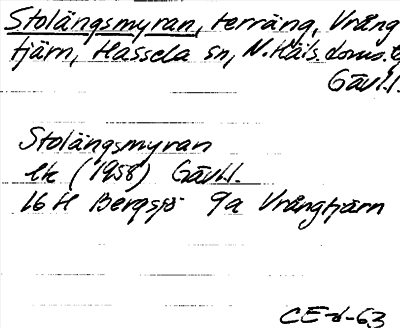 Stolängsmyran, terräng, Vrång
tjärn, Hassela sn, N. Häls. doms.
Gävl.l.
Stolängsmyran
ek (1958) Gävl.l.
16 H Bergsjö 9a Vrångtjärn
CE-d-63